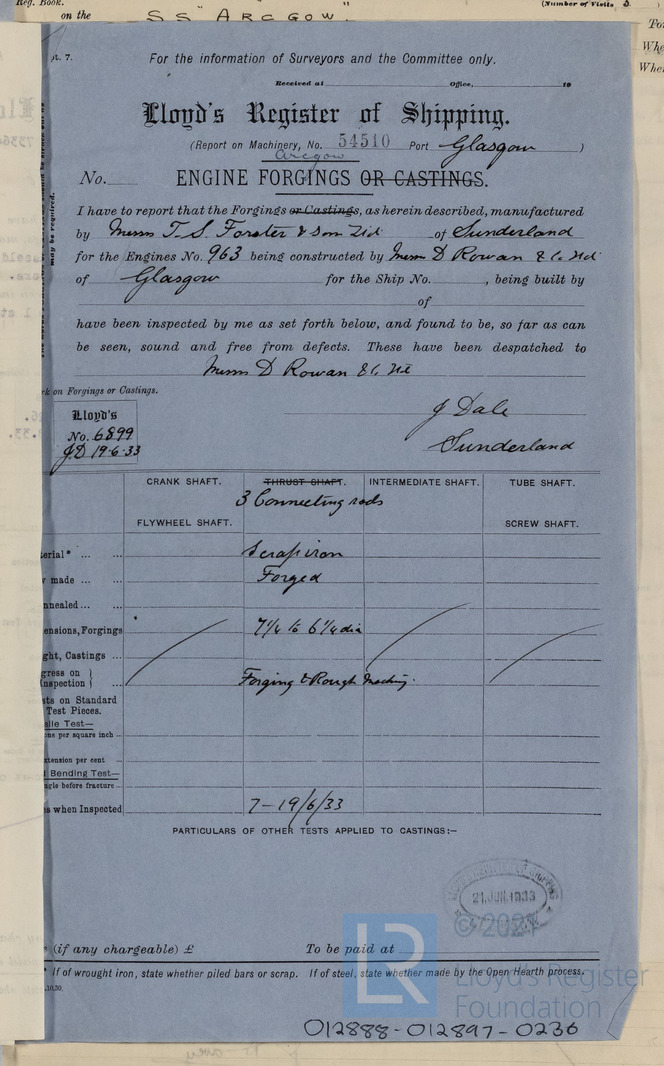 Reg. Book.
(Number of Visits 3.
on the S.S "ARCGOW.
pt. 7.
For the information of Surveyors and the Committee only.
Received at Office, 19
Lloyd's Register of Shipping.
(Report on Machinery, No. 54510 Port Glasgow )
Arcgow
No. ENGINE FORGINGS OR CASTINGS.
I have to report that the Forgings or Castings, as herein described, manufactured
by Messrs T. S. Forster & Son Ltd of Sunderland
for the Engines No. 963 being constructed by Messrs D Rowan & Co Ltd
of Glasgow for the Ship No. , being built by
of
have been inspected by me as set forth below, and found to be, so far as can
be seen, sound and free from defects. These have been despatched to
Messrs D Rowan & Co Ltd
rk on Forgings or Castings.
Lloyd's
No. 6899
JD 19-6-33
J Dale
Sunderland
CRANK SHAFT. THRUST SHAFT. INTERMEDIATE SHAFT. TUBE SHAFT.
3 Connecting rods
FLYWHEEL SHAFT. SCREW SHAFT.
erial* ... ... Scrap iron
made ... ... Forged
nnealed ... ...
ensions, Forgings 7 1/4 to 6 1/4 dia
ght, Castings ...
gress on
nspection } ... Forging & Rough Maching.
sts on Standard
Test Pieces.
sile Test—
ons per square inch
xtension per cent
Bending Test—
ngle before fracture
s when Inspected 7 - 19/6/33
PARTICULARS OF OTHER TESTS APPLIED TO CASTINGS:—
21.JUN.1933
© 2021
(if any chargeable) £ To be paid at
* If of wrought iron, state whether piled bars or scrap. If of steel, state whether made by the Open Hearth process.
.10,30.
LR
Lloyd's Register
Foundation
012888-012897-0236